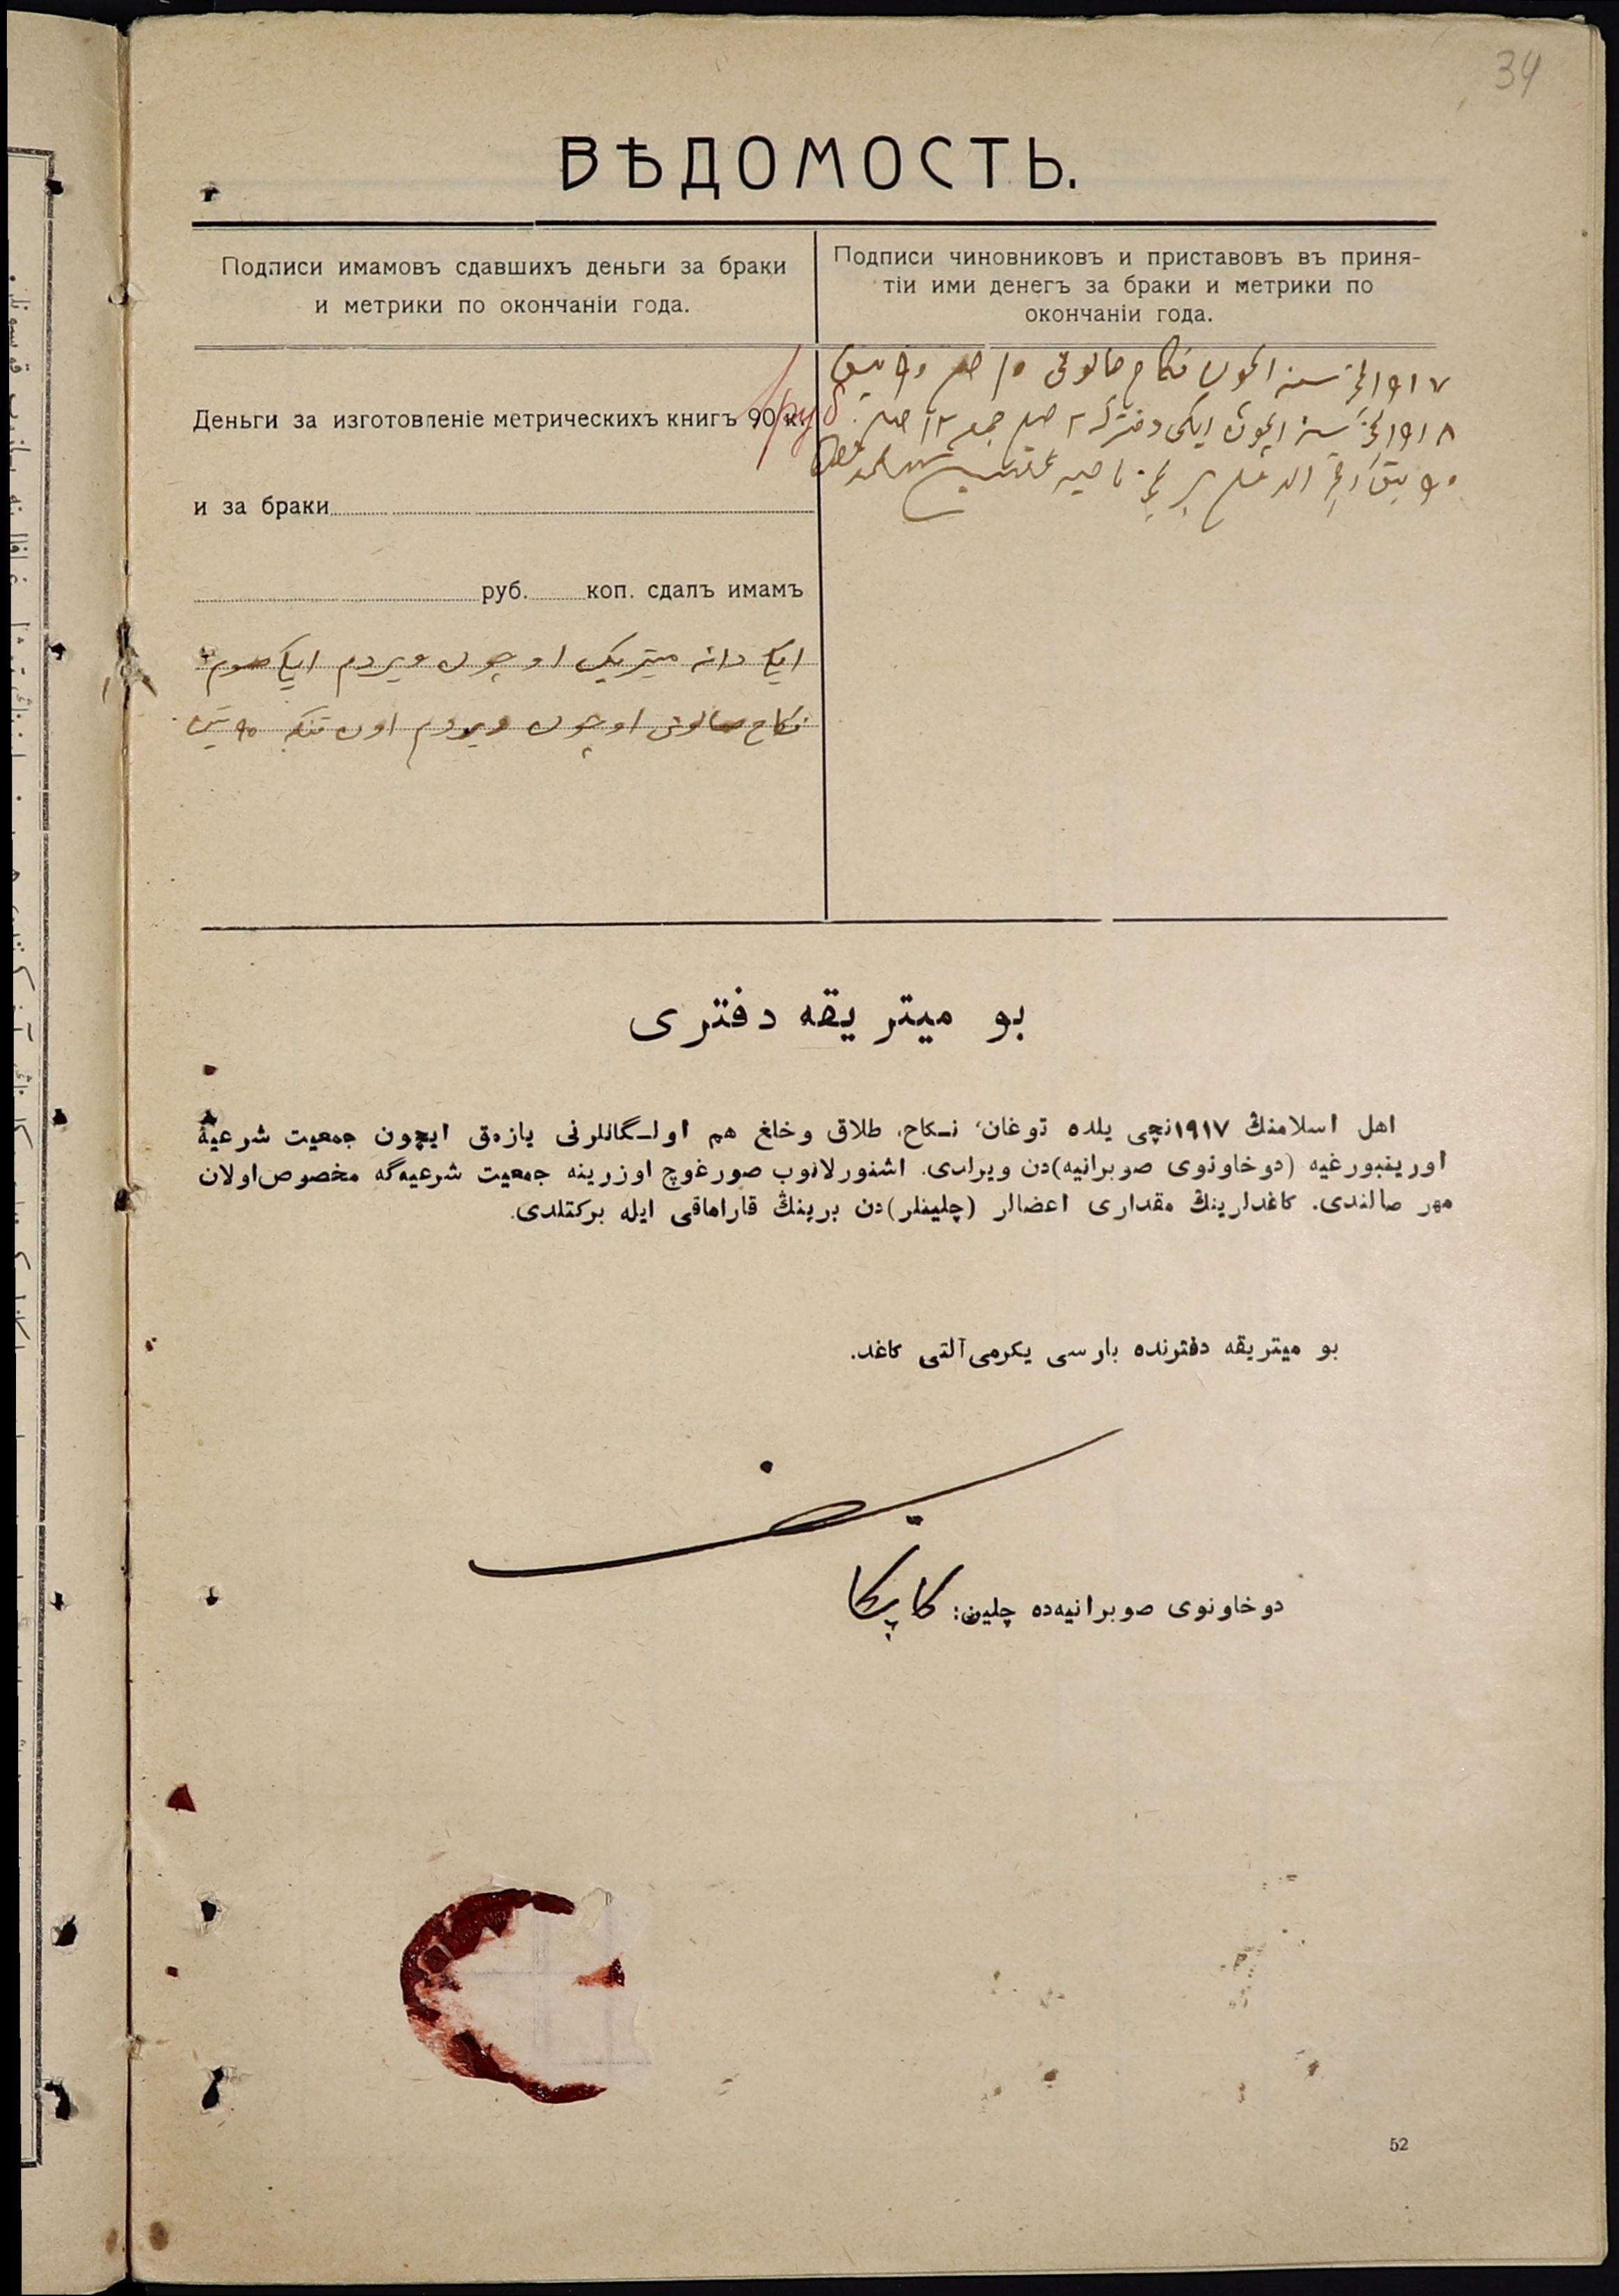 34
ВѢДОМОСТЬ.
Подписи имамовъ сдавшихъ деньги за браки
и метрики по окончаніи года.
Подписи чиновниковъ и приставовъ въ приня-
тіи ими денегъ за браки и метрики по
окончаніи года.
Деньги за изготовленіе метрическихъ книгъ 90 к.
1 руб
и за браки
руб. коп. сдалъ имамъ
ایکی دانه میتریک اوچون ویردم ایکی صوم
نکاح صالوی اوچون ویردم اون تنکه ۹۰ تین
۱۹۱۷ نچی سنه ایچون نکاح صالوغی ۱۰ صوم ۹۰ تین
۱۹۱۸ نچی سنه ایچون ایکی دفترکه ۲ صوم جمع ۱۲ صوم
۹۰ تین
بو میتریقه دفتری
اهل اسلامنڭ ۱۹۱۷نچی یلده توغان، نـكاح، طلاق وخلغ هم اولـگانلرنی یازمق ایچون جمعیت شرعیهٔ
اورینبورغیه (دوخاونوی صوبرانیه)دن ویرلدی. اشنورلانوب صورغوچ اوزرینه جمعیت شرعیه‌گه مخصوص اولان
مهر صالندی. کاغدلرینڭ مقداری اعضالر (چلینلر)دن برینڭ قاراماقی ایله برکتلدی.
بو میتریقه دفترنده بارسی یکرمی آلتی کاغد.
دوخاونوی صوبرانیه‌ده چلین:
52